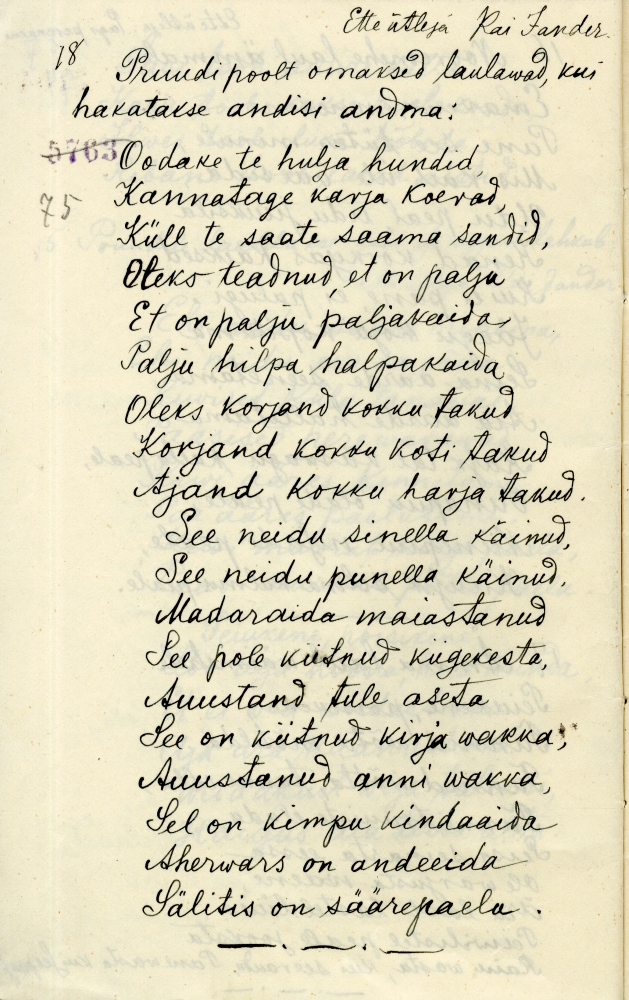 Ette ütleja Kai Sander.
18 Pruudi poolt omaksed laulawad, kui
hakatakse andisi andma:
5763 Oodake te hulja hundid,
75 Kannatage karja koerad,
Küll te saate saama sandid,
Oleks teadnud, et on palju
Et on palju paljakaida,
Palju hilpa halpakaida
Oleks korjand kokku takud
Korjand kokku koti takud
Ajand kokku harja takud.
See neidu sinella käinud,
See neidu punella käinud.
Madaraida maiastanud
See pole kiitnud kiigekesta,
Auustand tule aseta
See on kiitnud kirja wakka,
Auustanud anni wakka,
Sel on kimpu kindaaida
Aherwars on andeeida
Sälitis on säärepaelu.